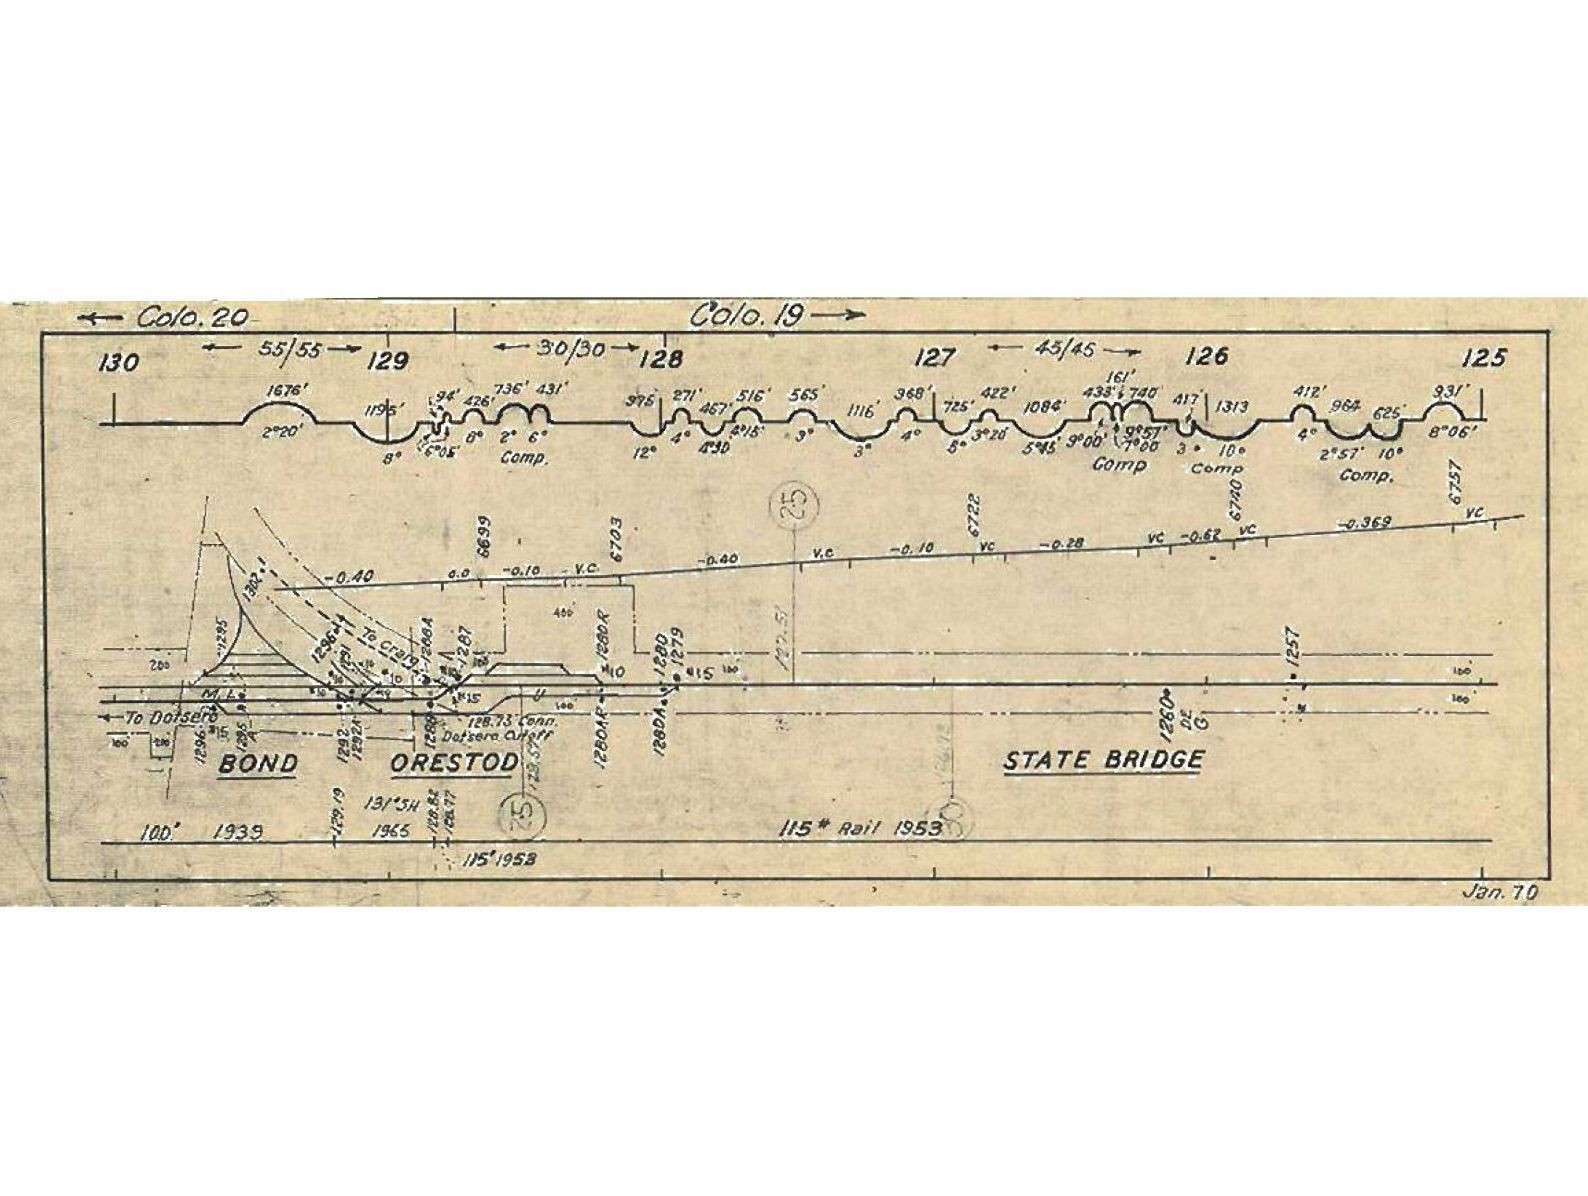 ← Colo. 20 Colo. 19 →
130 ← 55/55 → 129 ← 30/30 → 128 127 ← 45/45 → 126 125
1676' 1195' 94' 426' 736' 431' 975 271' 467' 516' 565' 1116' 368' 725' 422' 1084' 433' 161' 740' 417' 1313 412' 964 625' 931'
2°20' 8° 6°05' 8° 2° 6° 12° 4° 4°30 4°15' 3° 3° 4° 5° 3°20' 5°45' 9°00' 9°57' 7°00' 3° 10° 4° 2°57' 10° 8°06'
Comp. Comp Comp Comp.
6699 6703 25 6722 6740 6757
-0.40 0.0 -0.10 V.C. -0.40 V.C -0.10 VC -0.28 VC -0.62 VC -0.369 VC
1302 1295 1296 1291 To Craig 1288A 1287 400' 1280R 1280 1279 127.51 1257
200 10 10 10 15 10 15 100' 100'
M.L. U 100' 100'
← To Dotsero 128.73 Conn.
Dotsero Cutoff
100' 200 1296 15 1295 A 1292 1292A 1288 1280AR 1280A 1260 DE G
BOND ORESTOD STATE BRIDGE
128.57 25 30
100' 1939 129.19 131# SH 1965 128.82 128.77 115# Rail 1953
115' 1953
Jan. 70